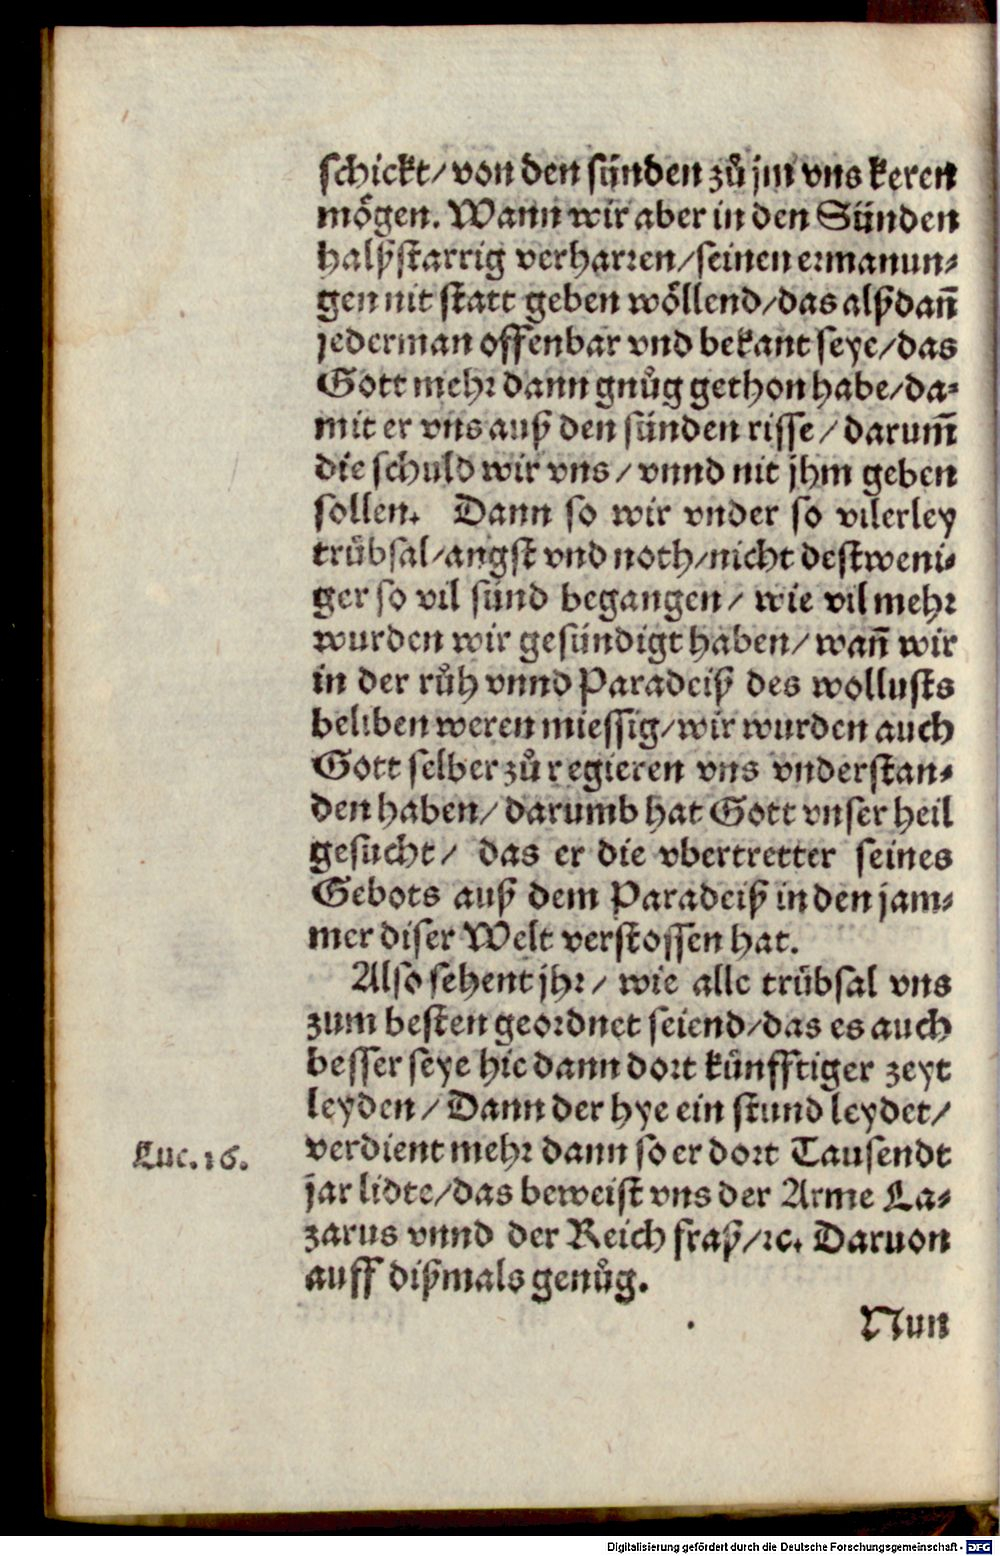 schickt/ von den sünden zů jm vns keren
mögen. Wann wir aber in den Sünden
halßstarrig verharren/ seinen ermanun-
gen nit statt geben wöllend/ das alßdañ
jederman offenbar vnd bekant seye/ das
Gott mehr dann gnůg gethon habe/ da-
mit er vns auß den sünden risse/ darum̃
die schuld wir vns/ vnnd nit jhm geben
sollen. Dann so wir vnder so vilerley
trübsal/ angst vnd noth/ nicht destweni-
ger so vil sünd begangen/ wie vil mehr
wurden wir gesündigt haben/ wañ wir
in der růh vnnd Paradeiß des wollusts
beliben weren miessig/ wir wurden auch
Gott selber zů regieren vns vnderstan-
den haben/ darumb hat Gott vnser heil
gesucht/ das er die vbertretter seines
Gebots auß dem Paradeiß in den jam-
mer diser Welt verstossen hat.
Also sehent jhr/ wie alle trübsal vns
zum besten geordnet seiend/ das es auch
besser seye hie dann dort künfftiger zeyt
leyden/ Dann der hye ein stund leydet/
Luc. 16. verdient mehr dann so er dort Tausendt
jar lidte/ das beweist vns der Arme La-
zarus vnnd der Reich fraß/ ꝛc. Daruon
auff dißmals genůg.
Nun
Digitalisierung gefördert durch die Deutsche Forschungsgemeinschaft - DFG